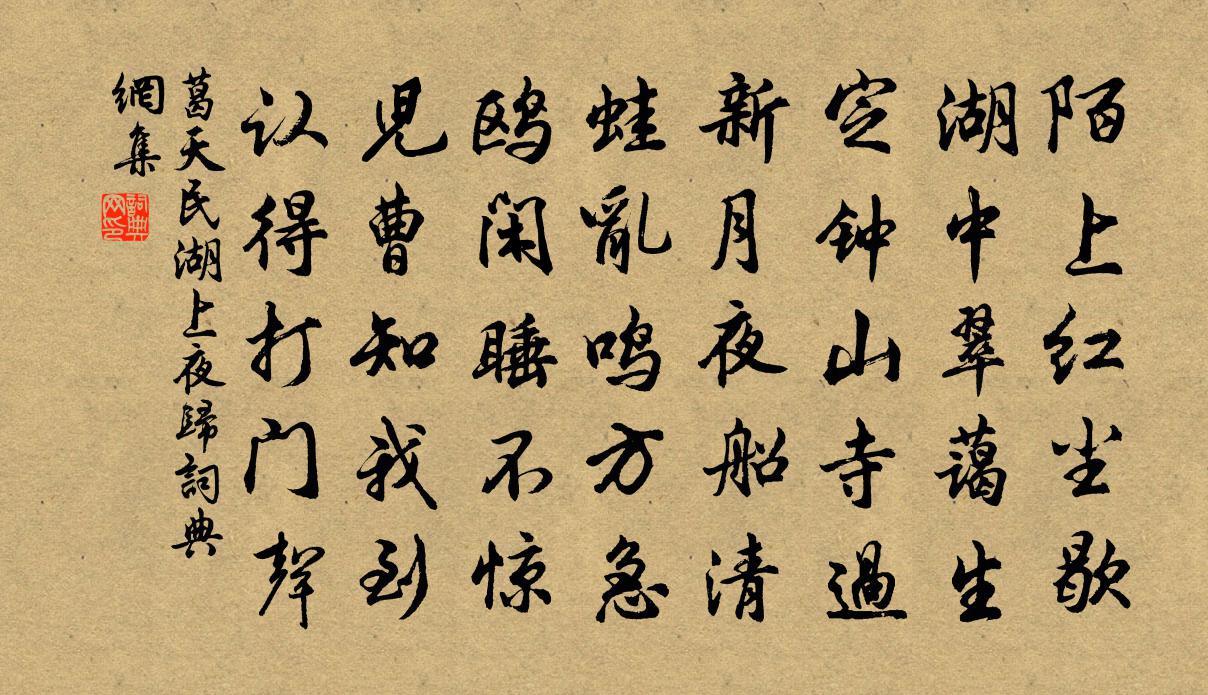 陌上红尘歇
湖中翠蔼生
定钟山寺過
新月夜船清
蛙亂鸣方急
鸥闲睡不惊
児曹知我到
认得打门聲
葛天民湖上夜歸詞典
網集
詞典
网印